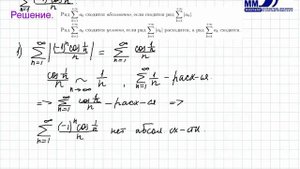 Ряд сходится абсолютно, если сходится ряд
Решение. Ряд сходится условно, если ряд расходится, а ряд сходится.
1) ∑_{n=1}^{∞} |(-1)^n cos(1/n) / n| = ∑_{n=1}^{∞} cos(1/n) / n
cos(1/n) / n ~_{n→∞} 1/n, ∑_{n=1}^{∞} 1/n - расх-ся
=> ∑_{n=1}^{∞} cos(1/n) / n - расх-ся =>
∑_{n=1}^{∞} (-1)^n cos(1/n) / n нет абсол сх-сти